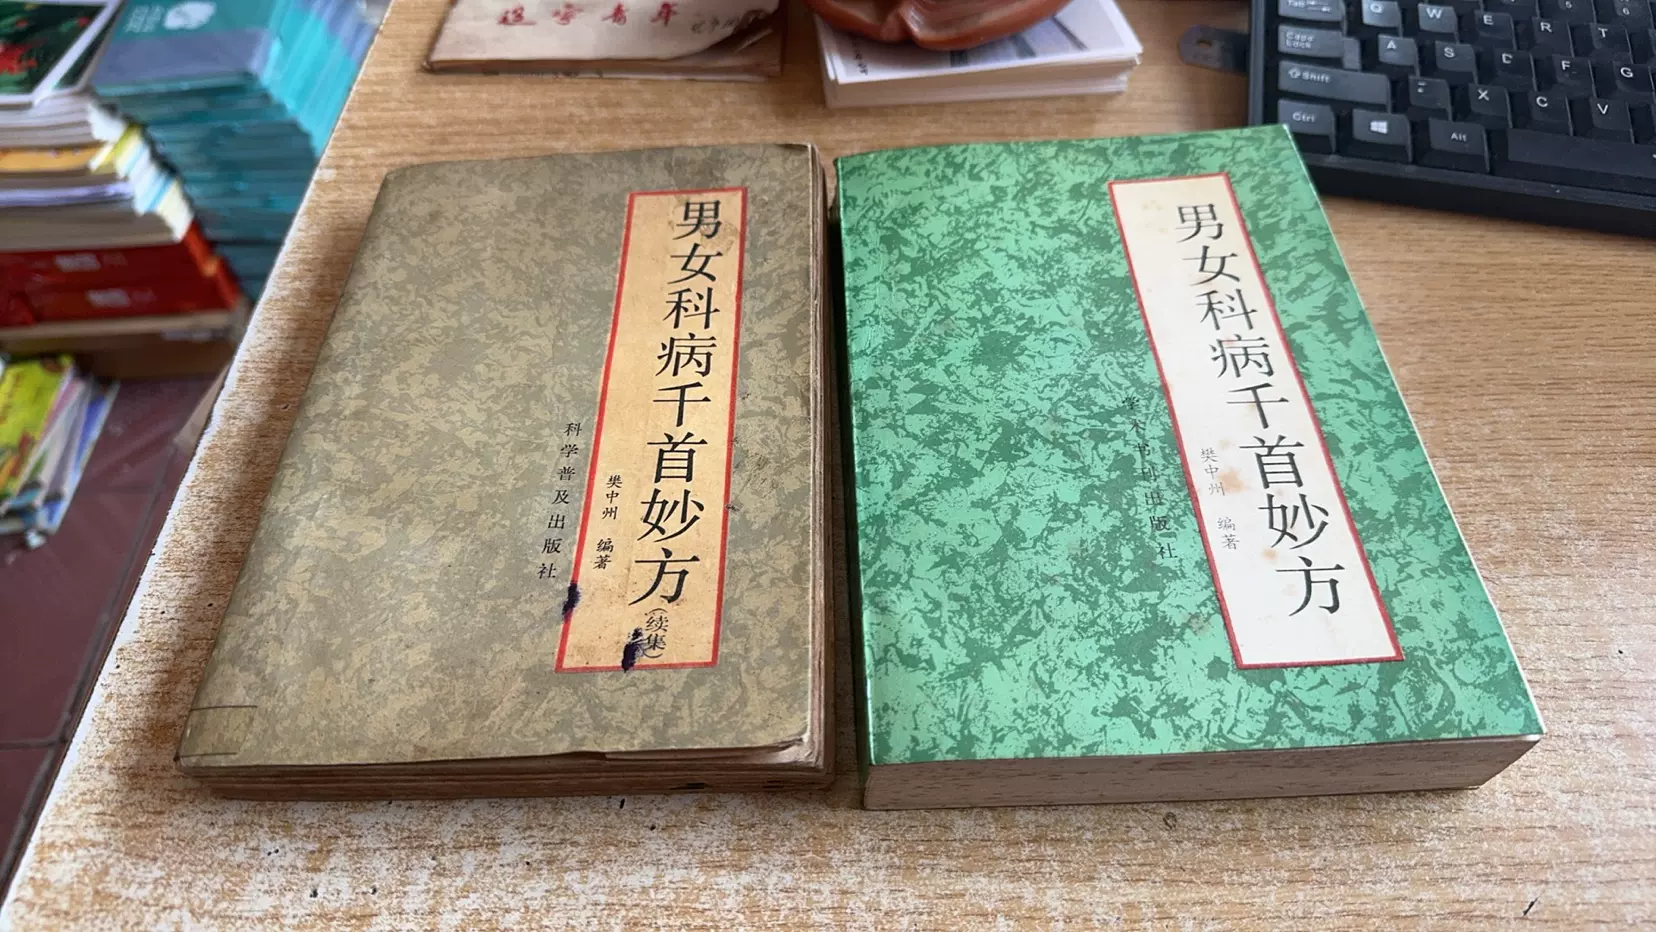 辽宁青年
男女科病千首妙方
(续集)
樊中州 编著
科学普及出版社
男女科病千首妙方
樊中州 编著
学术书刊出版社
Tab
Q
W
E
R
T
Caps Lock
A
S
D
F
G
Shift
Z
X
C
V
Ctrl
Alt